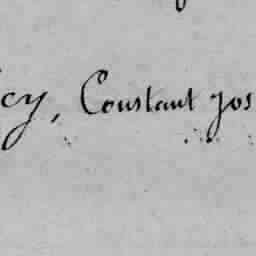 cy, Constant jos